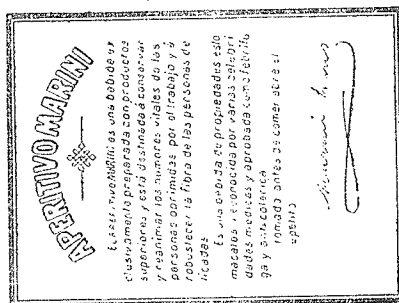 APERITIVO MARINI
EL APERITIVO MARINI es una bebida ex
clusivamente preparada con productos
superiores y está destinada a conservar
y reanimar los humores vitales de las
personas oprimidas por el trabajo y á
robustecer la fibra de las personas de
licadas
Es una bebida de propiedades esto
macales reconocida por varias celebri
dades medicas y aprobada como febrifu
ga y anticolerica
Tomada antes de comer abre el
apetito